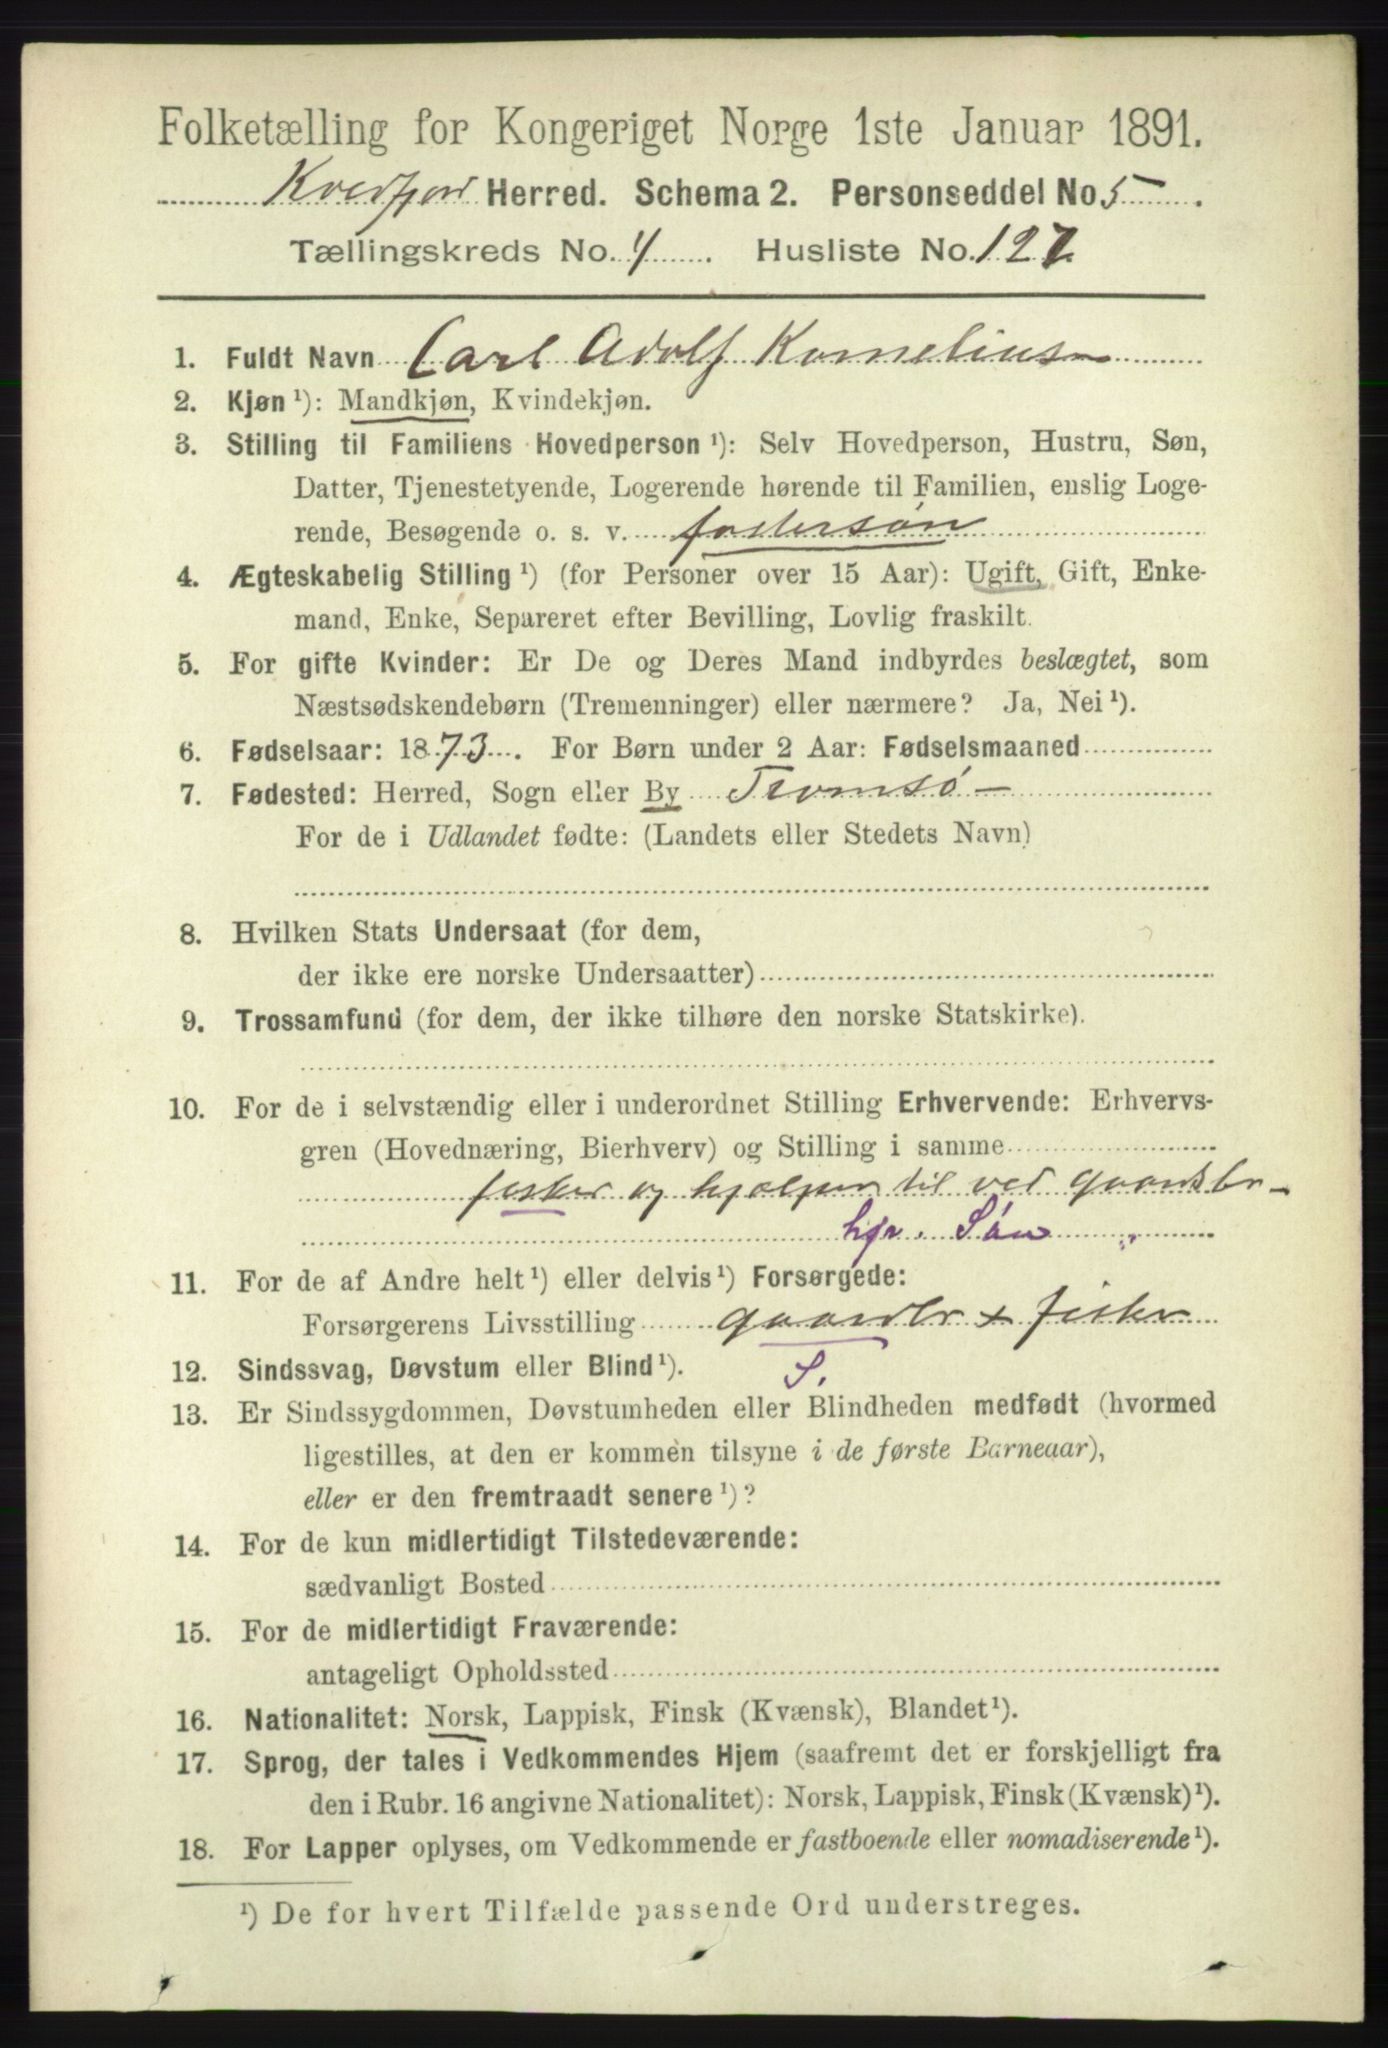 Folketælling for Kongeriget Norge 1ste Januar 1891.
Kvedfjord Herred. Schema 2. Personseddel No. 5
Tællingskreds No. 4. Husliste No. 127
1. Fuldt Navn Carl Adolf Kornelius
2. Kjøn ¹): Mandkjøn, Kvindekjøn.
3. Stilling til Familiens Hovedperson ¹): Selv Hovedperson, Hustru, Søn,
Datter, Tjenestetyende, Logerende hørende til Familien, enslig Loge-
rende, Besøgende o. s. v. fostersøn
4. Ægteskabelig Stilling ¹) (for Personer over 15 Aar): Ugift, Gift, Enke-
mand, Enke, Separeret efter Bevilling, Lovlig fraskilt.
5. For gifte Kvinder: Er De og Deres Mand indbyrdes beslægtet, som
Næstsødskendebørn (Tremenninger) eller nærmere? Ja, Nei ¹).
6. Fødselsaar: 1873. For Børn under 2 Aar: Fødselsmaaned
7. Fødested: Herred, Sogn eller By Tromsø
For de i Udlandet fødte: (Landets eller Stedets Navn)
8. Hvilken Stats Undersaat (for dem,
der ikke ere norske Undersaatter)
9. Trossamfund (for dem, der ikke tilhøre den norske Statskirke).
10. For de i selvstændig eller i underordnet Stilling Erhvervende: Erhvervs-
gren (Hovednæring, Bierhverv) og Stilling i samme
fisker og hjælper til ved gaardsbr
hjr. Søn "
11. For de af Andre helt ¹) eller delvis ¹) Forsørgede:
Forsørgerens Livsstilling gaardbr + fisker
12. Sindssvag, Døvstum eller Blind ¹). S.
13. Er Sindssygdommen, Døvstumheden eller Blindheden medfødt (hvormed
ligestilles, at den er kommen tilsyne i de første Barneaar),
eller er den fremtraadt senere ¹)?
14. For de kun midlertidigt Tilstedeværende:
sædvanligt Bosted
15. For de midlertidigt Fraværende:
antageligt Opholdssted
16. Nationalitet: Norsk, Lappisk, Finsk (Kvænsk), Blandet ¹).
17. Sprog, der tales i Vedkommendes Hjem (saafremt det er forskjelligt fra
den i Rubr. 16 angivne Nationalitet): Norsk, Lappisk, Finsk (Kvænsk) ¹).
18. For Lapper oplyses, om Vedkommende er fastboende eller nomadiserende ¹).
¹) De for hvert Tilfælde passende Ord understreges.